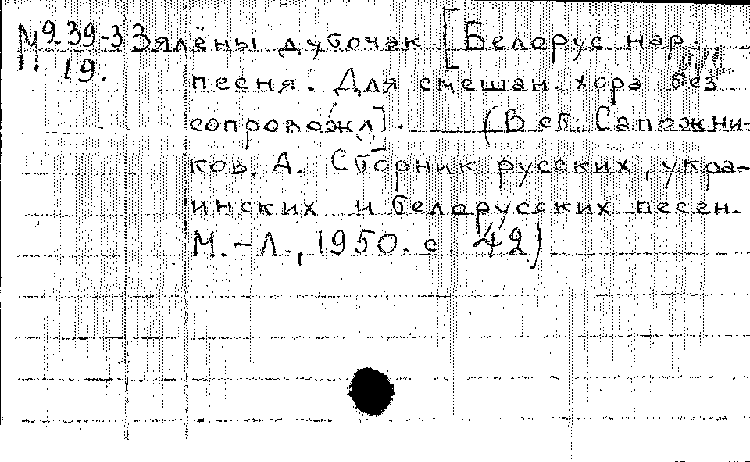 М 9.39-3 Зялёны дубочак [Белорус нар.
19. песня. Для смешан. хора без
сопровожд]. — (В сб. Сапожни-
ков, А. Сборник русских, укра-
инских и белорусских песен.
М.-Л., 1950. с. 42)